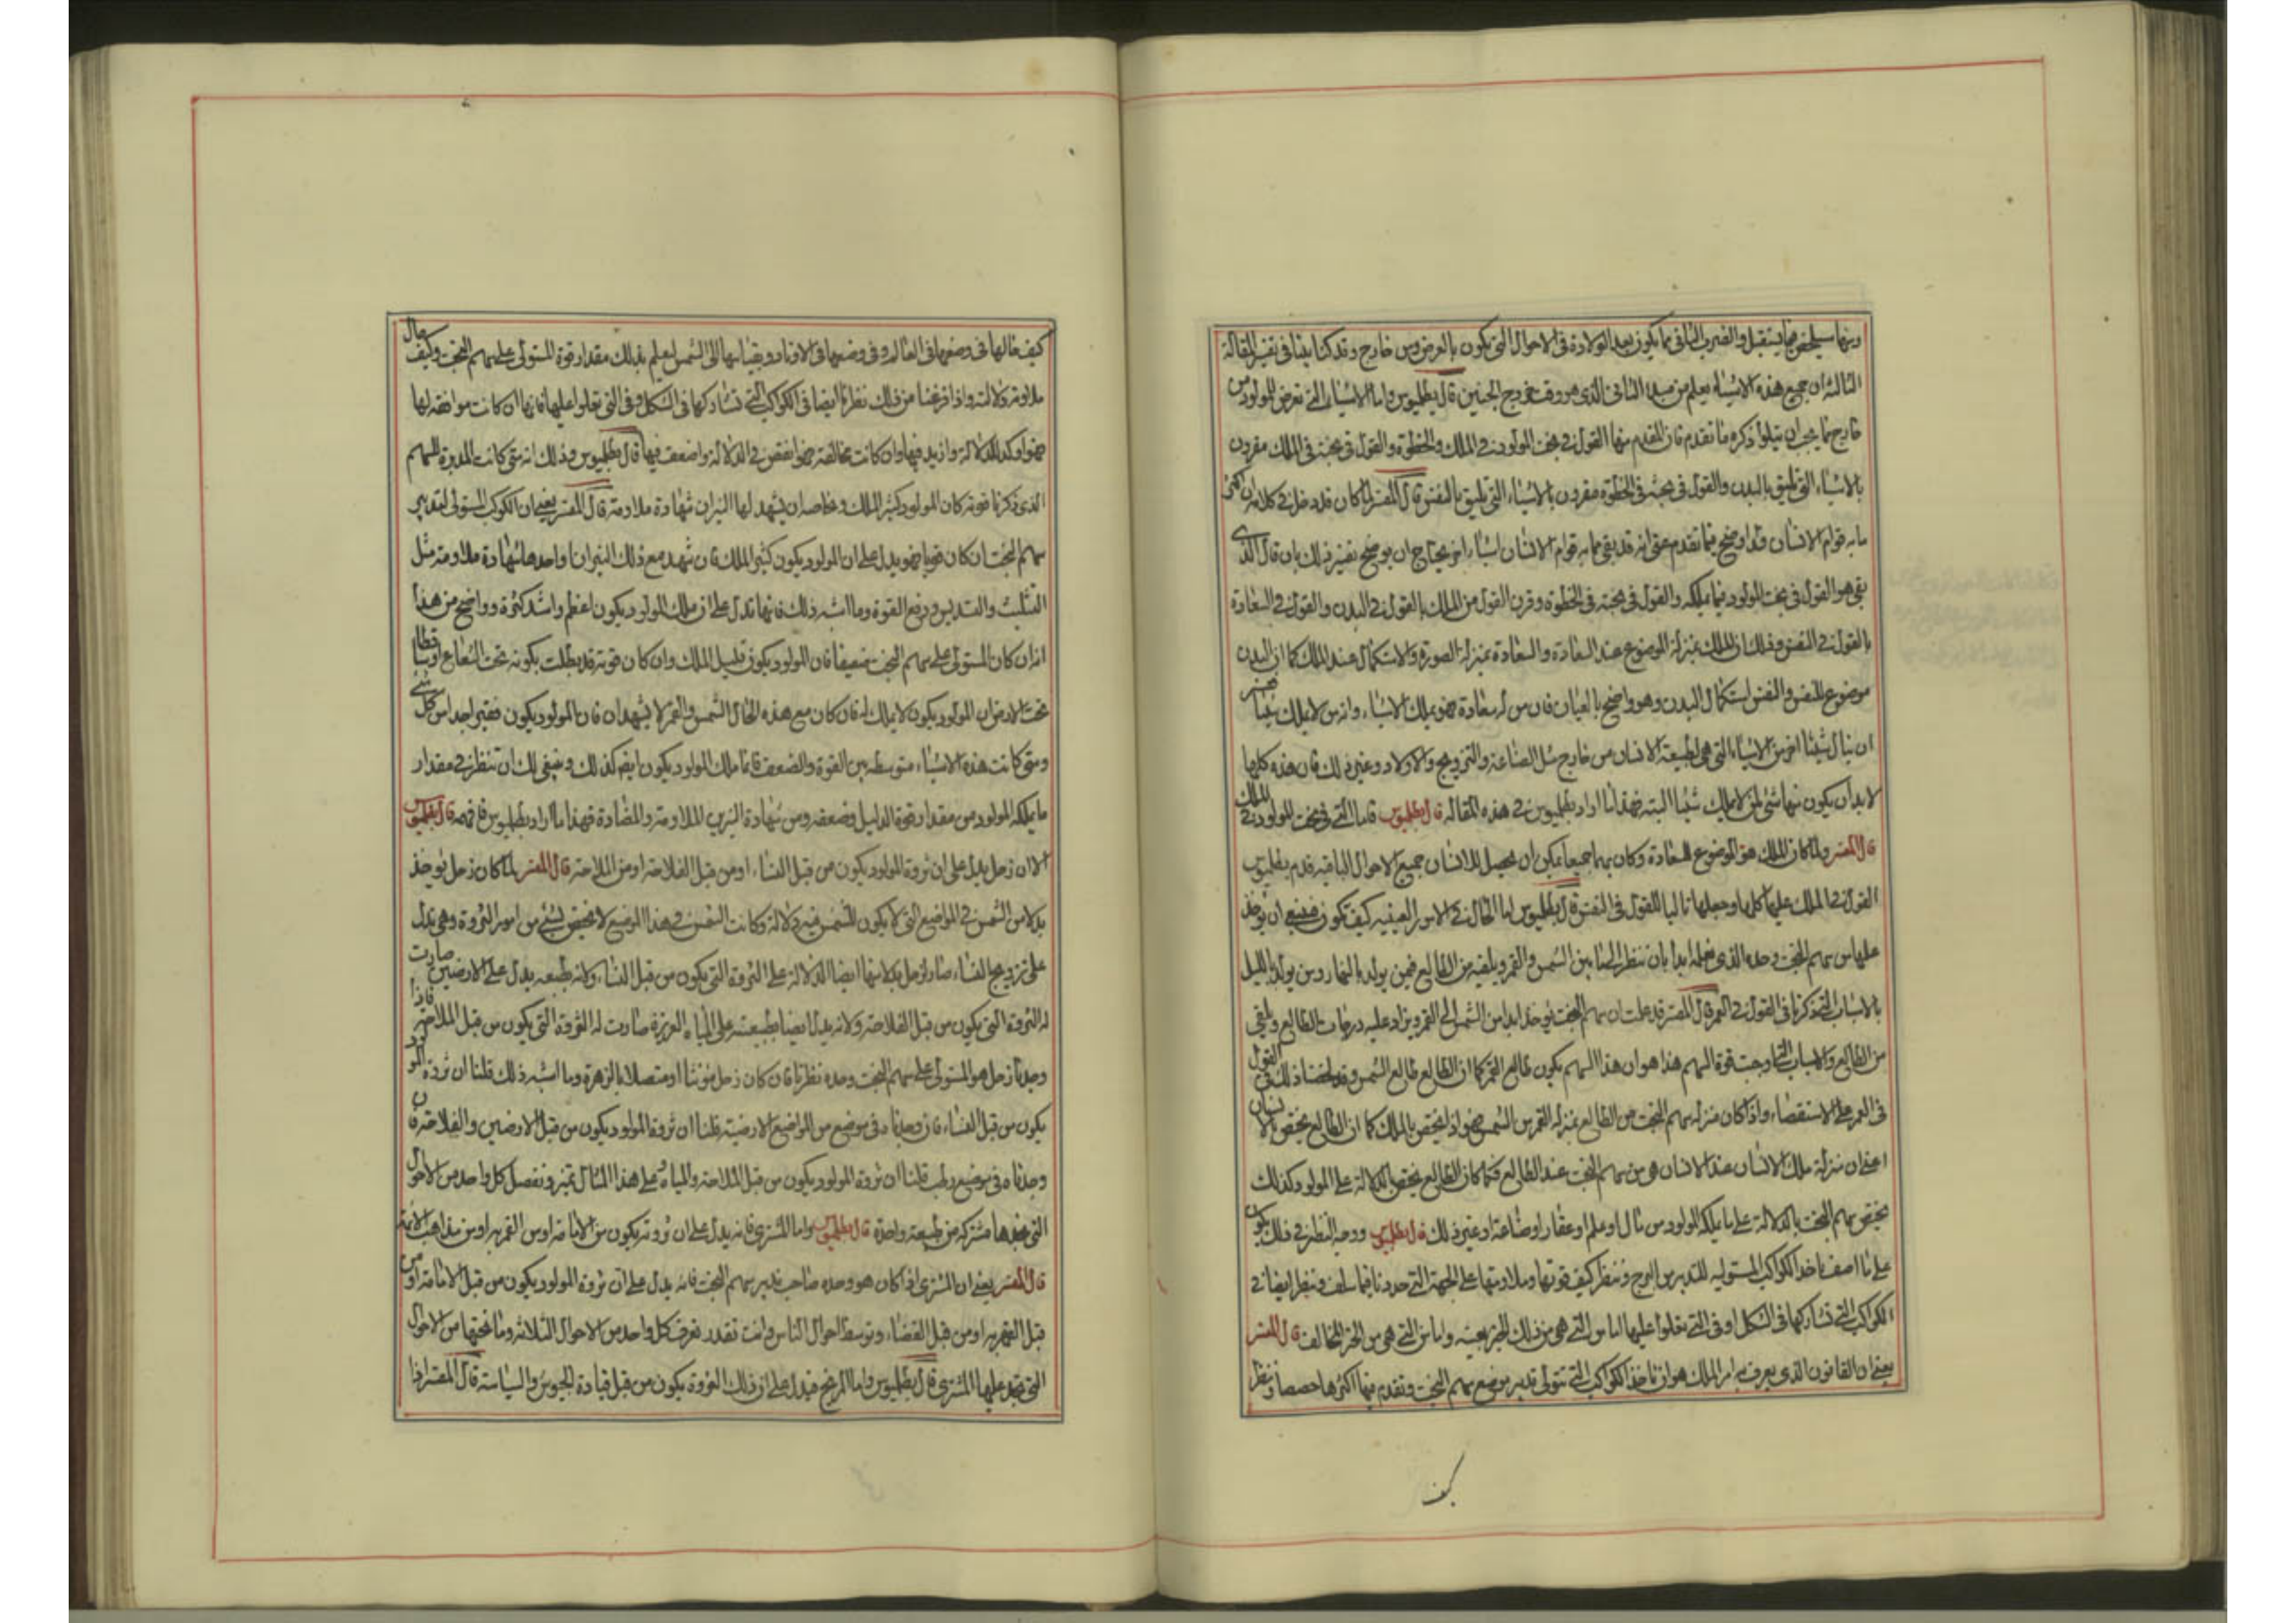 ومنها سيلحقه فيما يستقبل والضرب الثاني ما يكون بعد الولادة في الاحوال التي يكون بالعرض ومن خارج وقد كنا بينا في تفسير المقالة
الثالثة ان جميع هذه الاشياء يعلم من مبدا الثاني الذي هو وقت خروج الجنين قال بطلميوس واما الاشياء التي تعرض للمولود من
خارج مما يجب ان يتلوا ذكره ما تقدم فان المقدم منها القول في بخت المولود في الملك والحظوة والقول في بخته في الملك مقرون
بالاشياء التي تليق بالبدن والقول في بخته في الحظوة مقرون بالاشياء التي تليق بالنفس قال المفسر لما كان قد دخل في كلامه ان
ما به قوام الانسان وقد اوضح فيما تقدم حتى انه قد بقي مما به قوام الانسان اشياء اخر يحتاج ان يوضح تفسير ذلك بان قال الذي
بقي هو القول في بخت المولود فيما يملكه والقول في بخته في الحظوة وقرن القول من الملك بالقول في البدن والقول في السعادة
بالقول في النفس وذلك ان الملك بمنزلة الموضوع عند السعادة والسعادة بمنزلة الصورة والاستكمال عند الملك كما ان البدن
موضوع للنفس والنفس استكمال البدن وهو واضح بالعيان فان من له سعادة فهو يملك الاشياء وانه من لا يملك شيئا
ان ينال شيئا اخر من الاشياء التي هي لطبيعة الانسان من خارج مثل الصناعة والتزويج والاولاد وغير ذلك فان هذه كلها
لا بد ان يكون منها شيء لمن لا يملك شيئا البتة فهذا ما اراد بطلميوس في هذه المقالة قال بطلميوس فاما التي في بخت المولود في الملك
قال المفسر ولما كان الملك هو الموضوع للسعادة وكان بهما جميعا يمكن ان يحصل للانسان جميع الاحوال الباقية قدم بطلميوس
القول في الملك عليها كلها وجعلها تاليا للقول في النفس قال بطلميوس اما الحال في الامور العينية كيف تكون فينبغي ان تؤخذ
علمها من سهم البخت وحده الذي نعمله ابدا بان ننظر الى ما بين الشمس والقمر ونلقيه من الطالع فيمن يولد بالنهار ومن يولد بالليل
بالاسباب التي ذكرنا في القول في العمر قال المفسر قد علمت ان سهم البخت يؤخذ ابدا من الشمس الى القمر ويزاد عليه درجات الطالع ويلقي
من الطالع والاسباب التي اوجبت قوة السهم هذا هو ان هذا السهم يكون طالع القمر كما ان الطالع طالع الشمس وقد لخصنا ذلك في القول
في العمر على الاستقصاء واذا كان منزلة سهم البخت من الطالع بمنزلة القمر من الشمس فهو اذا يختص بالملك كما ان الطالع يختص بالانسان
اعني ان منزلة ملك الانسان عند الانسان هي من سهم البخت عند الطالع فكما كان الطالع يختص بالدلالة على المولود كذلك
يختص سهم البخت بالدلالة على ما يملكه المولود من مال او علم او عقار او صناعة او غير ذلك قال بطلميوس ووجه النظر في ذلك يكون
على ما اصف ناخذ الكواكب المستولية للتدبير من البرج وننظر كيف قوتها وملاومتها على الجهة التي حددنا فيما سلف وننظر ايضا في
الكواكب التي تشاركها في الشكل او في التي تعلوا عليها اما من التي هي من ذلك الحيز بعينه واما من التي هي من الحيز المخالف قال المفسر
يعني ان القانون الذي يعرف به امر الملك هو ان ناخذ الكواكب التي تتولى تدبير موضع سهم البخت ونقدم منها اكثرها حصصا وننظر
كيف حالها في وضعها في العالم وفي وضعها في الاوتاد وبقياسها الى الشمس ليعلم بذلك مقدار قوة المستولي على سهم البخت وكيف حال
ملاومة دلالته واذا فرغنا من ذلك نظرنا ايضا في الكواكب التي تشاركها في الشكل وفي التي تعلوا عليها فانها ان كانت موافقة لها
فهو اوكد للدلالة وازيد فيها وان كانت مخالفة فهو انقص في الدلالة واضعف فيها قال بطلميوس وذلك انه متى كانت المدبرة للسهم
الذي ذكرنا قوية كان المولود كثير الملك وخاصة ان يشهد لها النيران شهادة ملاومة قال المفسر يعني ان الكوكب المستولي لتدبير
سهم البخت ان كان قويا فهو يدل على ان المولود يكون كثير الملك فان شهد مع ذلك النيران او احدهما شهادة ملاومة مثل
التثليث والتسديس ودفع القوة وما اشبه ذلك فانها تدل على ان ملك المولود يكون اعظم واشد كثرة وواضح من هذا
انه ان كان المستولي على سهم البخت ضعيفا فان المولود يكون قليل الملك وان كان قوته قد بطلت بكونه تحت الشعاع او ساقطا
تحت الارض ان المولود يكون لا يملك له فان كان مع هذه الحال الشمس والقمر لا يشهدان فان المولود يكون فقيرا جدا من كل شيء
ومتى كانت هذه الاشياء متوسطة بين القوة والضعف فانما ملك المولود يكون ايضا كذلك وينبغي لك ان تنظر في مقدار
ما يملكه المولود من مقدار قوة الدليل وضعفه ومن شهادة النيرين الملاومة والمضادة فهذا ما اراد بطلميوس فافهمه قال بطلميوس
الا ان زحل يدل على ان ثروة المولود يكون من قبل البناء او من قبل الفلاحة او من الملاحة قال المفسر لما كان زحل يؤخذ
بدلا من الشمس في المواضع التي لا يكون للشمس فيه دلالة وكانت الشمس في هذا الموضع لا تختص لشيء من امور الثروة وهي تدل
على تزويج النساء صار لزحل بدلا منها ايضا الدلالة على الثروة التي يكون من قبل النساء ولانه بطبعه يدل على الارضين صارت
له الثروة التي يكون من قبل الفلاحة ولانه يدل ايضا بطبيعته على المياه الغزيرة صارت له الثروة التي يكون من قبل الملاحة فاذا
وجدنا زحل هو المستولي على سهم البخت وحده نظرنا فان كان زحل مؤنثا او متصلا بالزهرة وما اشبه ذلك قلنا ان ثروة المولود
يكون من قبل النساء فان وجدناه في موضع من المواضع الارضية قلنا ان ثروة المولود يكون من قبل الارضين والفلاحة فان
وجدناه في موضع رطب قلنا ان ثروة المولود يكون من قبل الملاحة والمياه وعلى هذا المثال تميز وتفصل كل واحد من الاحوال
التي تجدها مشتركة من طبيعة واحدة قال بطلميوس واما المشتري فانه يدل على ان ثروته يكون من الامانة او من القهرمة او من مذاهب الائمة
قال المفسر يعني ان المشتري اذا كان هو وحده صاحب تدبير سهم البخت فانه يدل على ان ثروة المولود يكون من قبل الامانة او من
قبل القهرمة او من قبل القضاء وتوسط احوال الناس وانت تقدر تعرف كل واحد من الاحوال الثلاثة وما تحتها من الاحوال
التي تجد عليها المشتري قال بطلميوس واما المريخ فيدل على ان ذلك الثروة يكون من قبل قيادة الجيوش والسياسة قال المفسر اذا